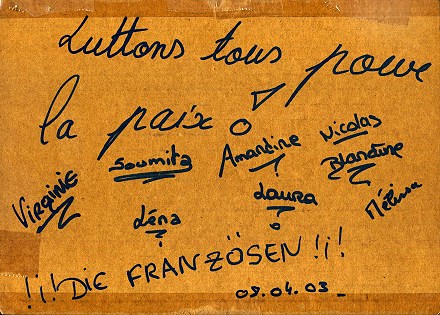 Luttons tous pour
la paix
Nicolas
Soumita Amandine Blandine
Virginie Laura Mélissa
Léna
!¡! DIE FRANZÖSEN !¡!
08.04.03